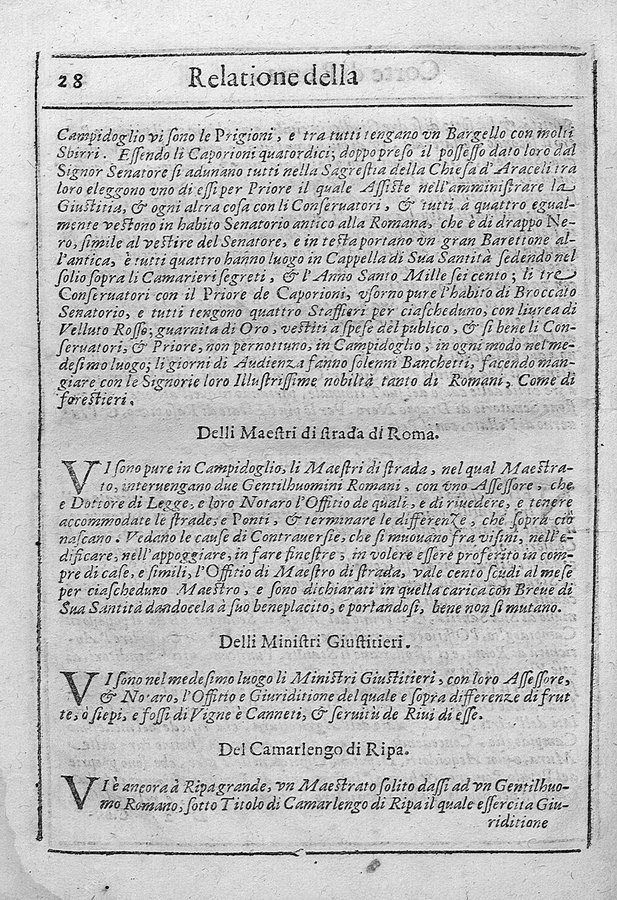 28 Relatione della
Campidoglio vi sono le Prigioni, e tra tutti tengano vn Bargello con molti
Sbirri. Essendo li Caporioni quatordici; doppo preso il possesso dato loro dal
Signor Senatore si adunano tutti nella Sagrestia della Chiesa d'Araceli tra
loro eleggono vno di essi per Priore il quale Assiste nell'amministrare la
Giustitia, & ogni altra cosa con li Conseruatori, & tutti à quattro egual-
mente vestono in habito Senatorio antico alla Romana, che è di drappo Ne-
ro, simile al vestire del Senatore, e in testa portano vn gran Barettone al-
l'antica, è tutti quattro hanno luogo in Cappella di Sua Santità sedendo nel
solio sopra li Camarieri segreti, & l'Anno Santo Mille sei cento; li tre
Conseruatori con il Priore de Caporioni, vsorno pure l'habito di Broccato
Senatorio, e tutti tengono quattro Staffieri per ciascheduno, con liurea di
Velluto Rosso; guarnita di Oro, vestiti a spese del publico, & si bene li Con-
seruatori, & Priore, non pernottuno, in Campidoglio, in ogni modo nel me-
desimo luogo; li giorni di Audienza fanno solenni Banchetti, facendo man-
giare con le Signorie loro Illustrissime nobiltà tanto di Romani, Come di
forestieri.
Delli Maestri di strada di Roma.
VI sono pure in Campidoglio, li Maestri di strada, nel qual Maestra-
to, interuengano due Gentilhuomini Romani, con vno Assessore, che
e Dottore di Legge, e loro Notaro l'Offitio de quali, e di riuedere, e tenere
accommodate le strade, e Ponti, & terminare le differenze, che sopra ciò
nascano. Vedano le cause di Contrauersie, che si muouano fra visini, nell'e-
dificare, nell'appoggiare, in fare finestre, in volere essere proferito in com-
pre di case, e simili, l'Offitio di Maestro di strada, vale cento scudi al mese
per ciascheduno Maestro, e sono dichiarati in quella carica con Breue di
Sua Santità dandocela à suo beneplacito, e portandosi, bene non si mutano.
Delli Ministri Giustitieri.
VI sono nel medesimo luogo li Ministri Giustitieri, con loro Assessore,
& Notaro, l'Offitio e Giuriditione del quale e sopra differenze di frut
te, ò siepi, e fossi di Vigne è Canneti, & seruitù de Riui di esse.
Del Camarlengo di Ripa.
VI è ancora à Ripagrande, vn Maestrato solito dassi ad vn Gentilhuo-
mo Romano; sotto Titolo di Camarlengo di Ripa il quale essercita Giu-
riditione